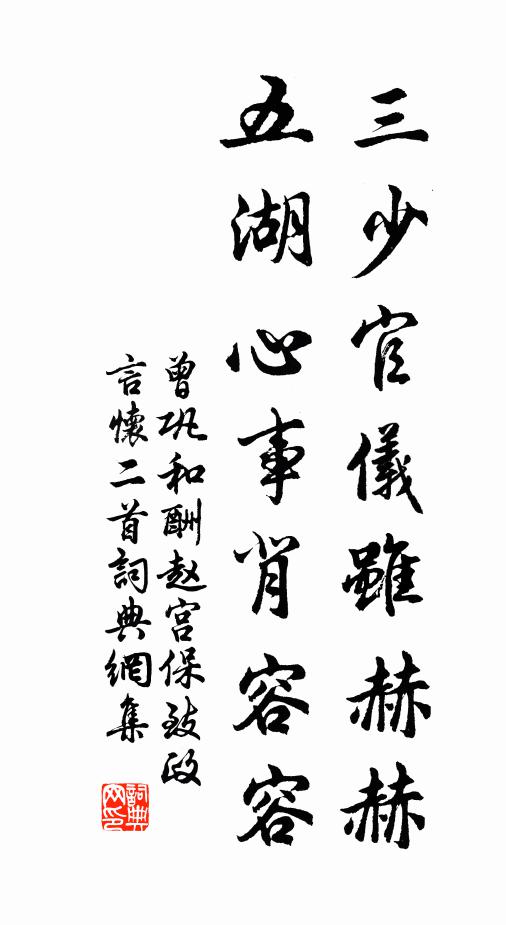 三少官儀雖赫赫
五湖心事肖容容
曾巩和酬赵宫保致政
言懷二首詞典網集
詞典
网印